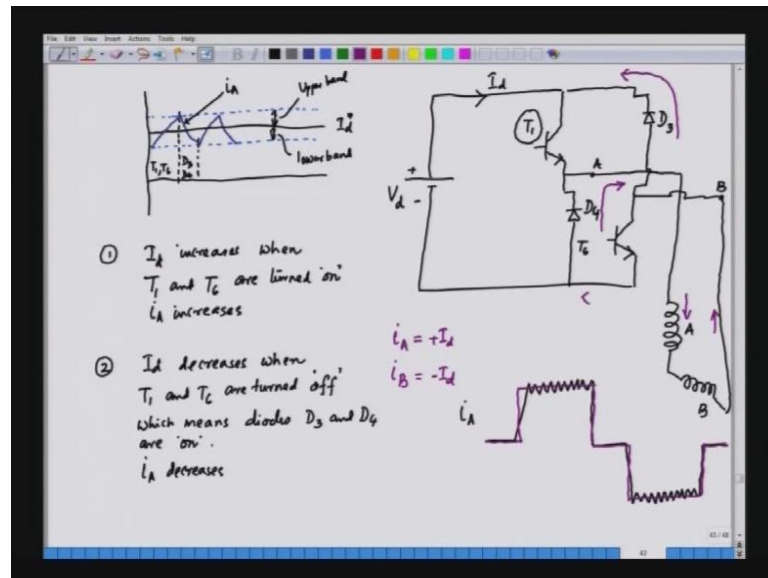 File Edit View Insert Actions Tools Help
iA
Upper band
Id*
Lower band
T1,T6
D3
D4
Id
T1
D3
A
B
+
Vd
-
D4
T6
A
B
① Id increases when
T1 and T6 are turned 'on'
iA increases
② Id decreases when
T1 and T6 are turned 'off'
which means diodes D3 and D4
are 'on'.
iA decreases
iA = +Id
iB = -Id
iA
43/48
43